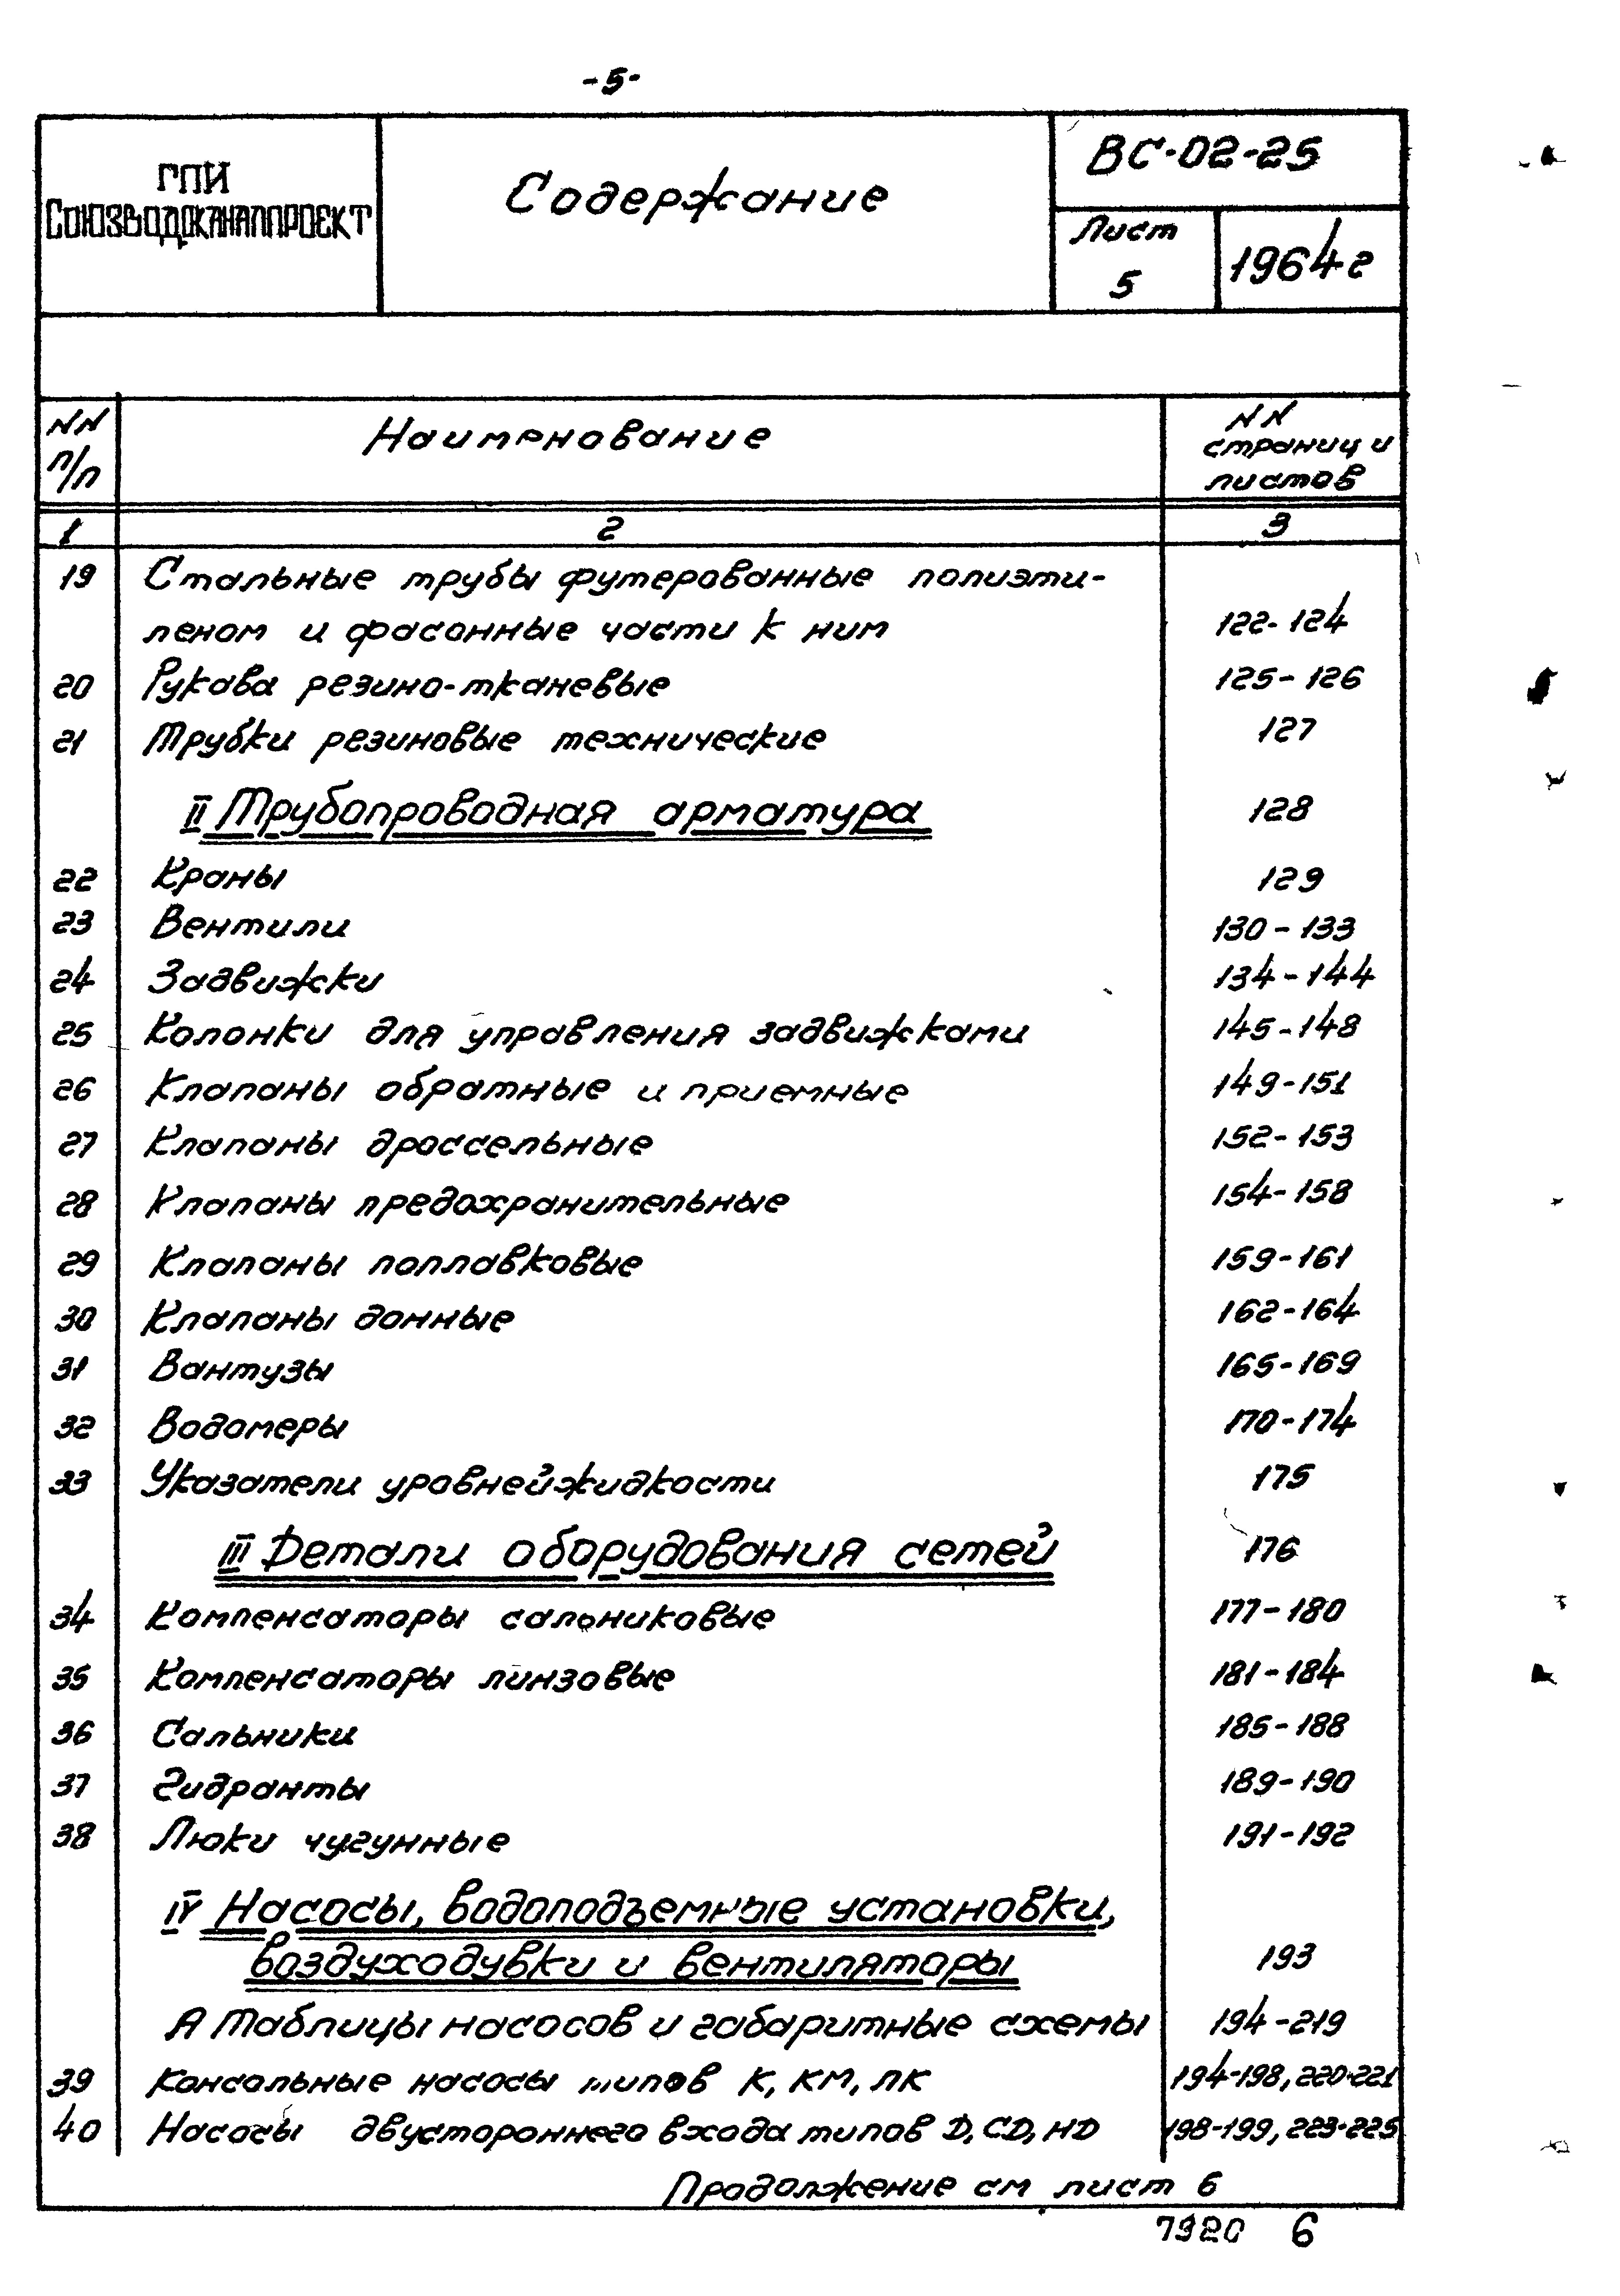 -5-
ГПИ
СОЮЗВОДОКАНАЛПРОЕКТ
Содержание
ВС-02-25
Лист
5
1964г
NN
п/п
Наименование
NN
страниц и
листов
1 2 3
19 Стальные трубы футерованные полиэти-
леном и фасонные части к ним 122-124
20 Рукава резино-тканевые 125-126
21 Трубки резиновые технические 127
II Трубопроводная арматура 128
22 Краны 129
23 Вентили 130-133
24 Задвижки 134-144
25 Колонки для управления задвижками 145-148
26 Клапаны обратные и приемные 149-151
27 Клапаны дроссельные 152-153
28 Клапаны предохранительные 154-158
29 Клапаны поплавковые 159-161
30 Клапаны донные 162-164
31 Вантузы 165-169
32 Водомеры 170-174
33 Указатели уровней жидкости 175
III Детали оборудования сетей 176
34 Компенсаторы сальниковые 177-180
35 Компенсаторы линзовые 181-184
36 Сальники 185-188
37 Гидранты 189-190
38 Люки чугунные 191-192
IV Насосы, водоподъемные установки,
воздуходувки и вентиляторы 193
А Таблицы насосов и габаритные схемы 194-219
39 Консольные насосы типов К, КМ, ЛК 194-198, 220-221
40 Насосы двустороннего входа типов Д, СД, НД 198-199, 223-225
Продолжение см лист 6
7920 6